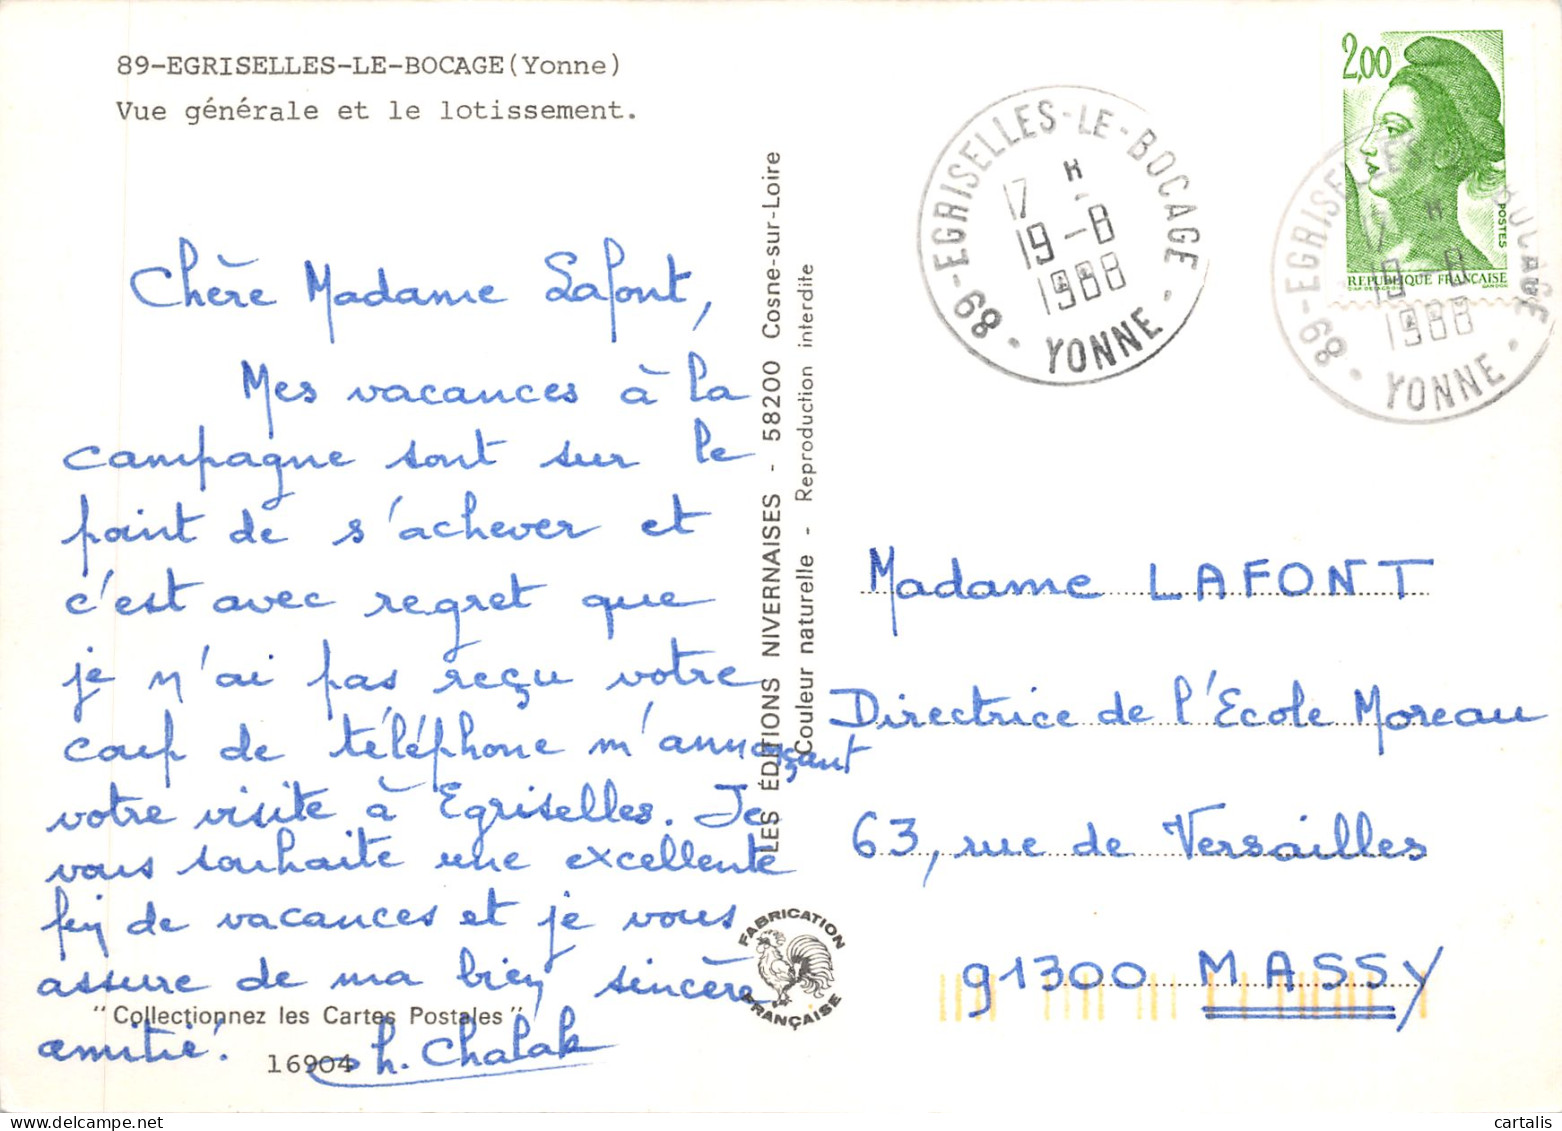 89-EGRISELLES-LE-BOCAGE(Yonne)
Vue générale et le lotissement.
Chère Madame Lafont,
Mes vacances à la
campagne sont sur le
point de s'achever et
c'est avec regret que
je n'ai pas reçu votre
coup de téléphone m'annonçant
votre visite à Egriselles. Je
vous souhaite une excellente
fin de vacances et je vous
assure de ma bien sincère
"Collectionnez les Cartes Postales"
amitié. Ch. Chalak
16904
LES ÉDITIONS NIVERNAISES - 58200 Cosne-sur-Loire
Couleur naturelle - Reproduction interdite
FABRICATION
FRANÇAISE
EGRISELLES-LE-BOCAGE
17 H
19-8
1988
89 - YONNE
2,00
POSTES
REPUBLIQUE FRANÇAISE
EGRISELLES-LE-BOCAGE
17 H
19-8
1988
89 - YONNE
Madame LAFONT
Directrice de l'Ecole Moreau
63, rue de Versailles
91300 MASSY
www.cartalis.com